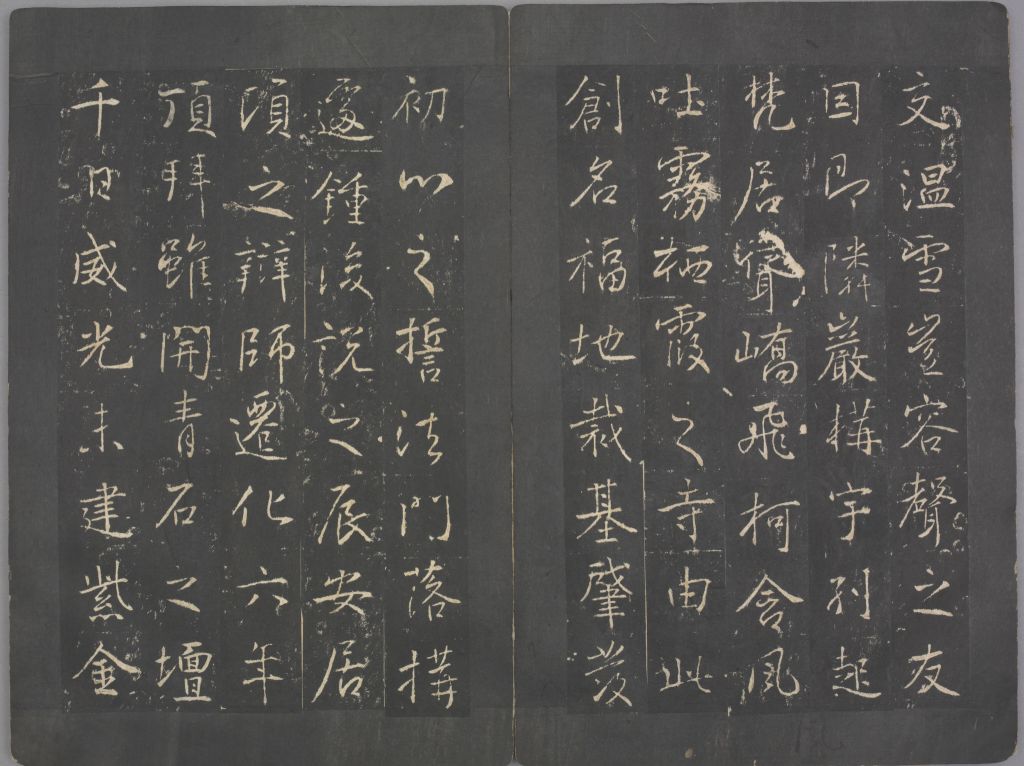 文温雪豈容聲之友
因即隣巖構宇列起
梵居聳嶠飛柯含風
吐霧栖霞之寺由此
創名福地裁基肇發
初心之誓法門落構
邃鍾後説之辰安居
頃之辯師遷化六年
頂拜雖開青石之壇
千日威光未建紫金